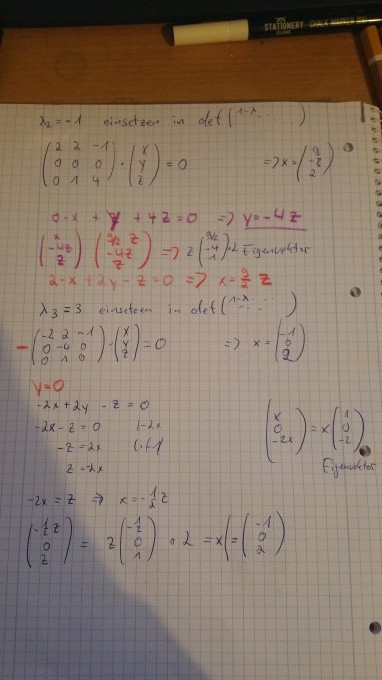 STATIONERY
ISLAND
CHALK MARKER PEN
λ₂=-1 einsetzen in det (1-λ ...)
(2 2 -1
0 0 0
0 1 4) · (x y z) = 0 => x = (9 -8 2)
0·x + y + 4z = 0 => y = -4z
(x -4z z) (9/2 z -4z z) => z (9/2 -4 1) ·2 Eigenvektor
2·x + 2y - z = 0 => x = 9/2 z
λ₃=3 einsetzen in det (1-λ ...)
-(-2 2 -1
0 -4 0
0 1 0) · (x y z) = 0 => x = (-1 0 2)
y=0
-2x+2y - z = 0
-2x - z = 0 |-2x
-z = 2x (·(-1)
z = -2x
(x 0 -2x) = x (1 0 -2)
Eigenvektor
-2x = z => x = -1/2 z
(-1/2 z 0 z) = z (-1/2 0 1) · 2 = x (= (-1 0 2)